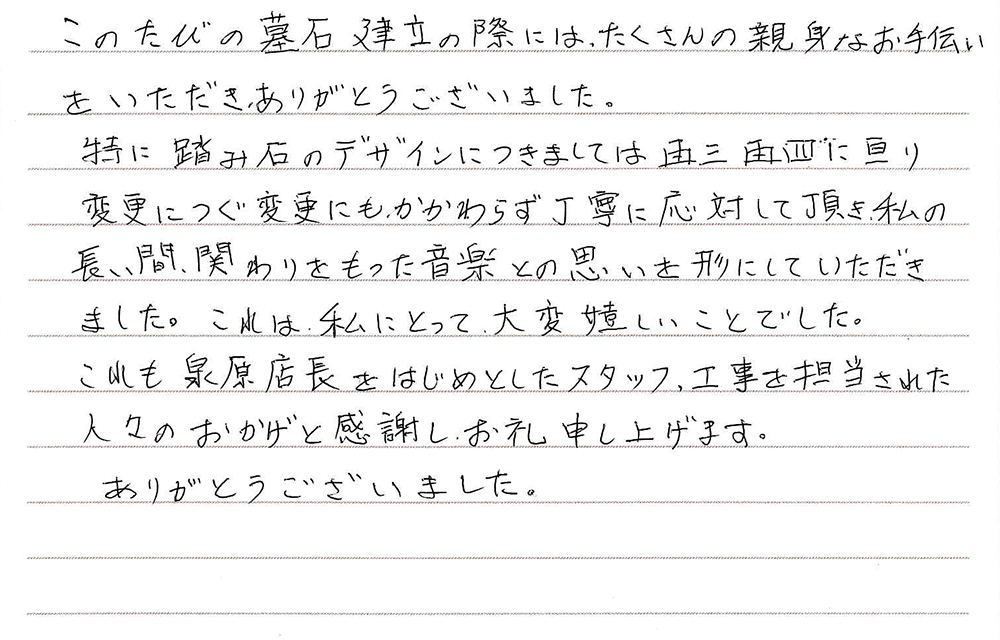 このたびの墓石建立の際には、たくさんの親身なお手伝い
をいただき、ありがとうございました。
特に踏み石のデザインにつきましては再三再四に亘り
変更につぐ変更にも、かかわらず丁寧に応対して頂き、私の
長い間、関わりをもった音楽との思いを形にしていただき
ました。これは、私にとって、大変嬉しいことでした。
これも泉原店長をはじめとしたスタッフ、工事を担当された
人々のおかげと感謝し、お礼申し上げます。
ありがとうございました。